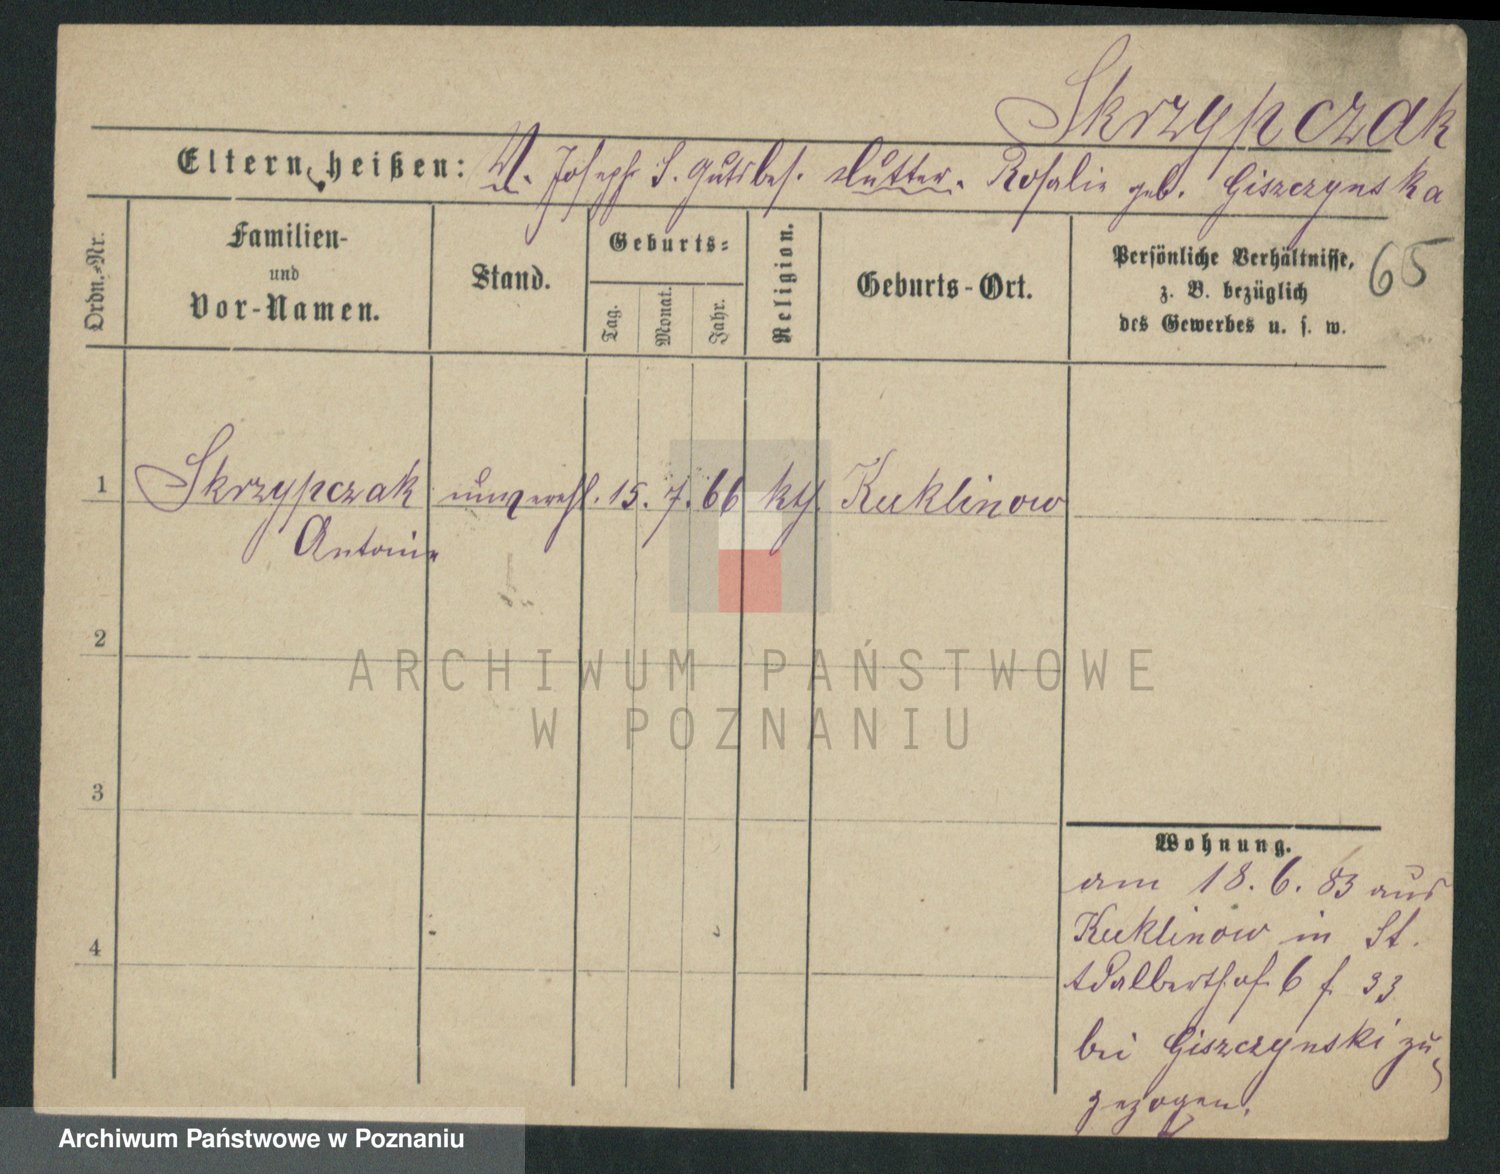 Skrzypczak
Eltern heißen: V. Joseph S. Gutsbes. Mutter. Rosalie geb. Giszczynska
Ordn.-Nr.
Familien-
und
Vor-Namen.
Stand.
Geburts-
Tag.
Monat.
Jahr.
Religion.
Geburts-Ort.
Persönliche Verhältnisse,
z. B. bezüglich
des Gewerbes u. s. w.
65
1 Skrzypczak unvereh. 15. 7. 66 kth. Kuklinow
Antonie
2
3
4
ARCHIWUM PAŃSTWOWE
W POZNANIU
Wohnung.
am 18. 6. 83 aus
Kuklinow in St.
Adalberthof 6 f 33
bei Giszczynski zu
gezogen.
Archiwum Państwowe w Poznaniu